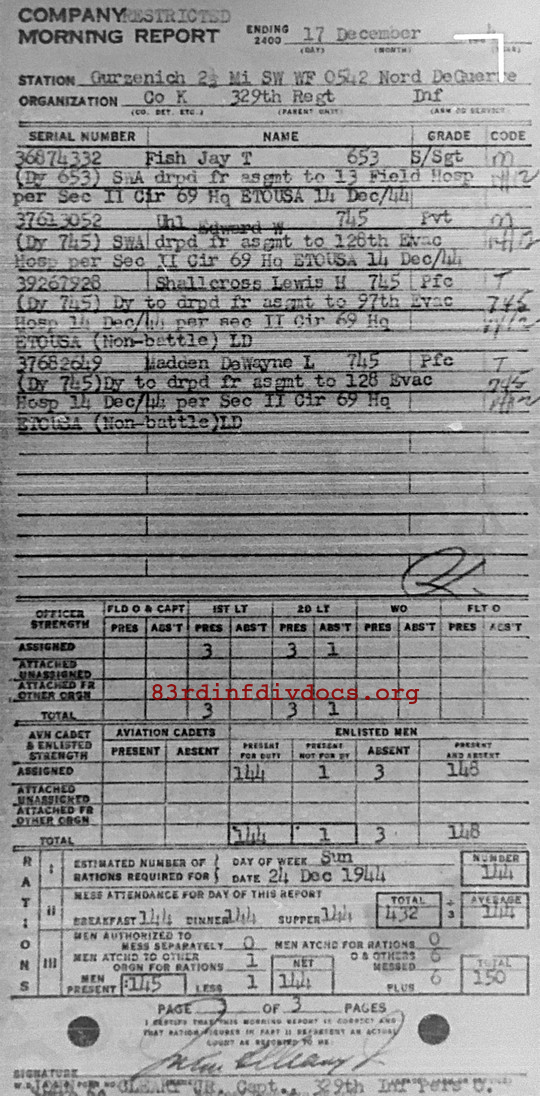 COMPANY RESTRICTED
MORNING REPORT ENDING 2400 17 December
(DAY) (MONTH) (YEAR)
STATION Gurzenich 2½ Mi SW WF 0542 Nord DeGuerre
ORGANIZATION Co K 329th Regt Inf
(CO. DET. ETC.) (PARENT UNIT) (ARM OR SERVICE)
SERIAL NUMBER NAME GRADE CODE
36874332 Fish Jay T 653 S/Sgt M
(Dy 653) SWA drpd fr asgmt to 13 Field Hosp
per Sec II Cir 69 Hq ETOUSA 14 Dec/44
37613052 Uhl Edward W 745 Pvt M
(Dy 745) SWA drpd fr asgmt to 128th Evac
Hosp per Sec II Cir 69 Hq ETOUSA 14 Dec/44
39267928 Shallcross Lewis H 745 Pfc T
(Dy 745) Dy to drpd fr asgmt to 97th Evac 745
Hosp 14 Dec/44 per sec II Cir 69 Hq
ETOUSA (Non-battle) LD
37682649 Madden DeWayne L 745 Pfc T
(Dy 745)Dy to drpd fr asgmt to 128 Evac 745
Hosp 14 Dec/44 per Sec II Cir 69 Hq
ETOUSA (Non-battle)LD
OFFICER STRENGTH FLD O & CAPT 1ST LT 2D LT WO FLT O
PRES ABS'T PRES ABS'T PRES ABS'T PRES ABS'T PRES ABS'T
ASSIGNED 3 3 1
ATTACHED UNASSIGNED
ATTACHED FR OTHER ORGN
83rdinfdivdocs.org
TOTAL 3 3 1
AVN CADET & ENLISTED STRENGTH AVIATION CADETS ENLISTED MEN
PRESENT ABSENT PRESENT FOR DUTY PRESENT NOT FOR DY ABSENT PRESENT AND ABSENT
ASSIGNED 144 1 3 148
ATTACHED UNASSIGNED
ATTACHED FR OTHER ORGN
TOTAL 144 1 3 148
RATIONS
I ESTIMATED NUMBER OF RATIONS REQUIRED FOR DAY OF WEEK Sun NUMBER
DATE 24 Dec 1944 144
II MESS ATTENDANCE FOR DAY OF THIS REPORT TOTAL AVERAGE
BREAKFAST 144 DINNER 144 SUPPER 144 432 ÷ 3 144
III MEN AUTHORIZED TO MESS SEPARATELY 0 MEN ATCHD FOR RATIONS 0
MEN ATCHD TO OTHER ORGN FOR RATIONS 1 NET O & OTHERS MESSED 6 TOTAL
MEN PRESENT 145 LESS 1 144 PLUS 6 150
PAGE 3 OF 3 PAGES
I CERTIFY THAT THIS MORNING REPORT IS CORRECT AND
THAT RATION FIGURES IN PART II REPRESENT AN ACTUAL
COUNT AS REPORTED TO ME:
SIGNATURE
CLEARY JR, Capt., 329th Inf Pers O.